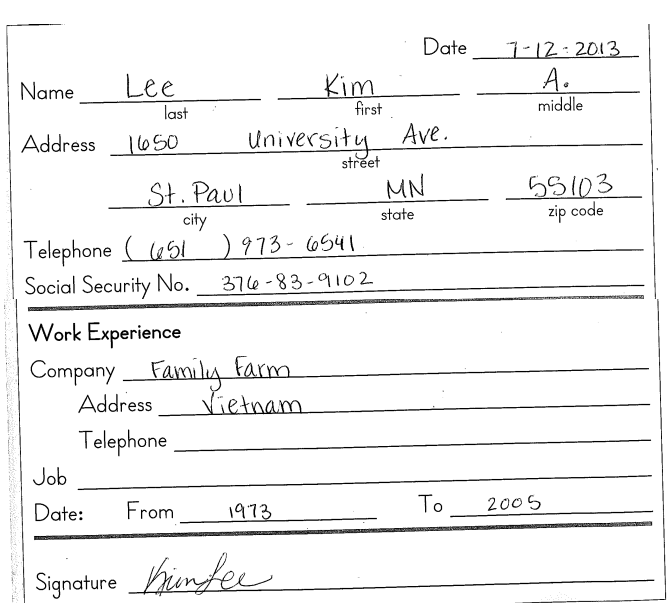 Date 7-12-2013
Name Lee Kim A.
last first middle
Address 1650 University Ave.
street
St. Paul MN 55103
city state zip code
Telephone (651) 973-6541
Social Security No. 376-83-9102
Work Experience
Company Family Farm
Address Vietnam
Telephone
Job
Date: From 1973 To 2005
Signature Kim Lee